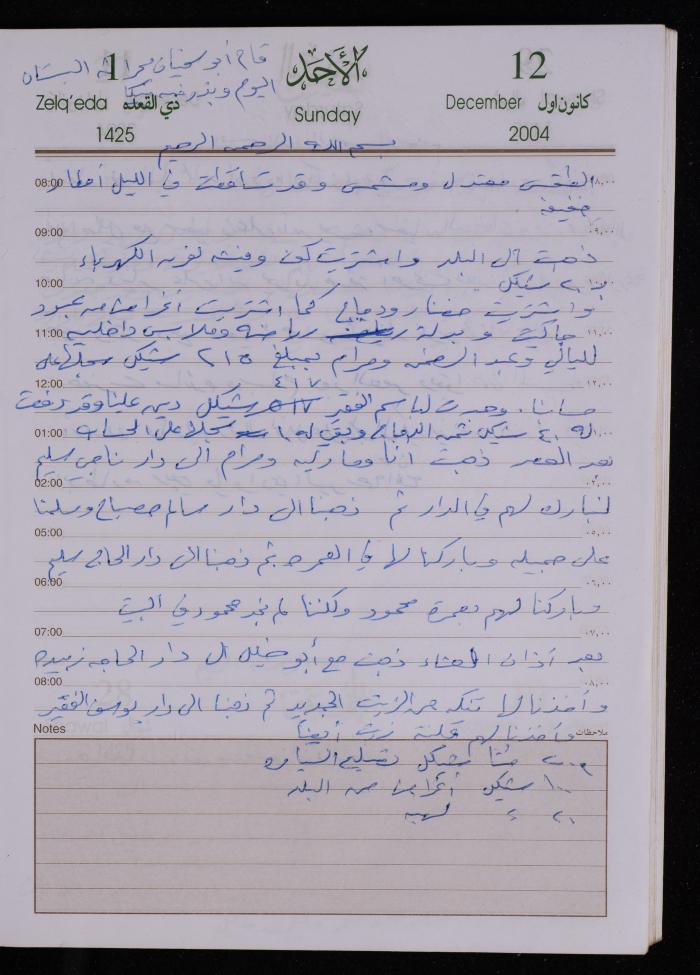 قام أبو سفيان بحراثة البستان
اليوم وبذر فيه
1 الأحد 12
Zelq'eda ذي القعده Sunday December كانون اول
1425 2004
بسم الله الرحمن الرحيم
08:00 الطقس معتدل ومشمس وقد تساقطت في الليل أمطار ٠٨,٠٠
خفيفة
09:00 ٠٩,٠٠
ذهبت الى البلد واشتريت كوت وفيشه لفرن الكهرباء
10:00 ب ٢٠ شيكل ١٠,٠٠
واشتريت خضار ودجاج كما اشتريت أغراض من عبود
11:00 جاكيت وبدلة رياضه وملابس داخليه ١١,٠٠
لليالي وعبد الرحمن ومرام بمبلغ ٢١٥ شيكل سجلها على
12:00 ٤١٧ ١٢,٠٠
حسابنا. وجدت لباسم الفقير شيكل دين علينا وقد دفعت
01:00 له ٤٠ شيكل ثمن الدجاج وبقي له سجلا على الحساب ٠١,٠٠
بعد العصر ذهبت أنا ومباركه ومرام الى دار ناجي سليم
02:00 ٠٢,٠٠
لنبارك لهم في الدار ثم ذهبنا الى دار سالم مصباح وسلمنا
05:00 ٠٥,٠٠
على جميله وباركنا لها في العمره ثم ذهبنا الى دار الحاج سليم
06:00 ٠٦,٠٠
وباركنا لهم بعمرة محمود ولكننا لم نجد محمود في البيت
07:00 ٠٧,٠٠
بعد أذان العشاء ذهبت مع أبو خليل الى دار الحاجه زبيده
08:00 ٠٨,٠٠
وأخذنا لها تنكه من الزيت الجديد ثم ذهبنا الى دار يوسف الفقير
Notes وأخذنا لهم أيضاً ملاحظات
٢٠٠ مئتا شيكل تصليح السياره
١٠٠ شيكل أغراض من البلد
٢٠ =